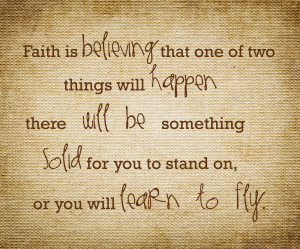 Faith is believing that one of two
things will happen
there will be something
solid for you to stand on,
or you will learn to fly.